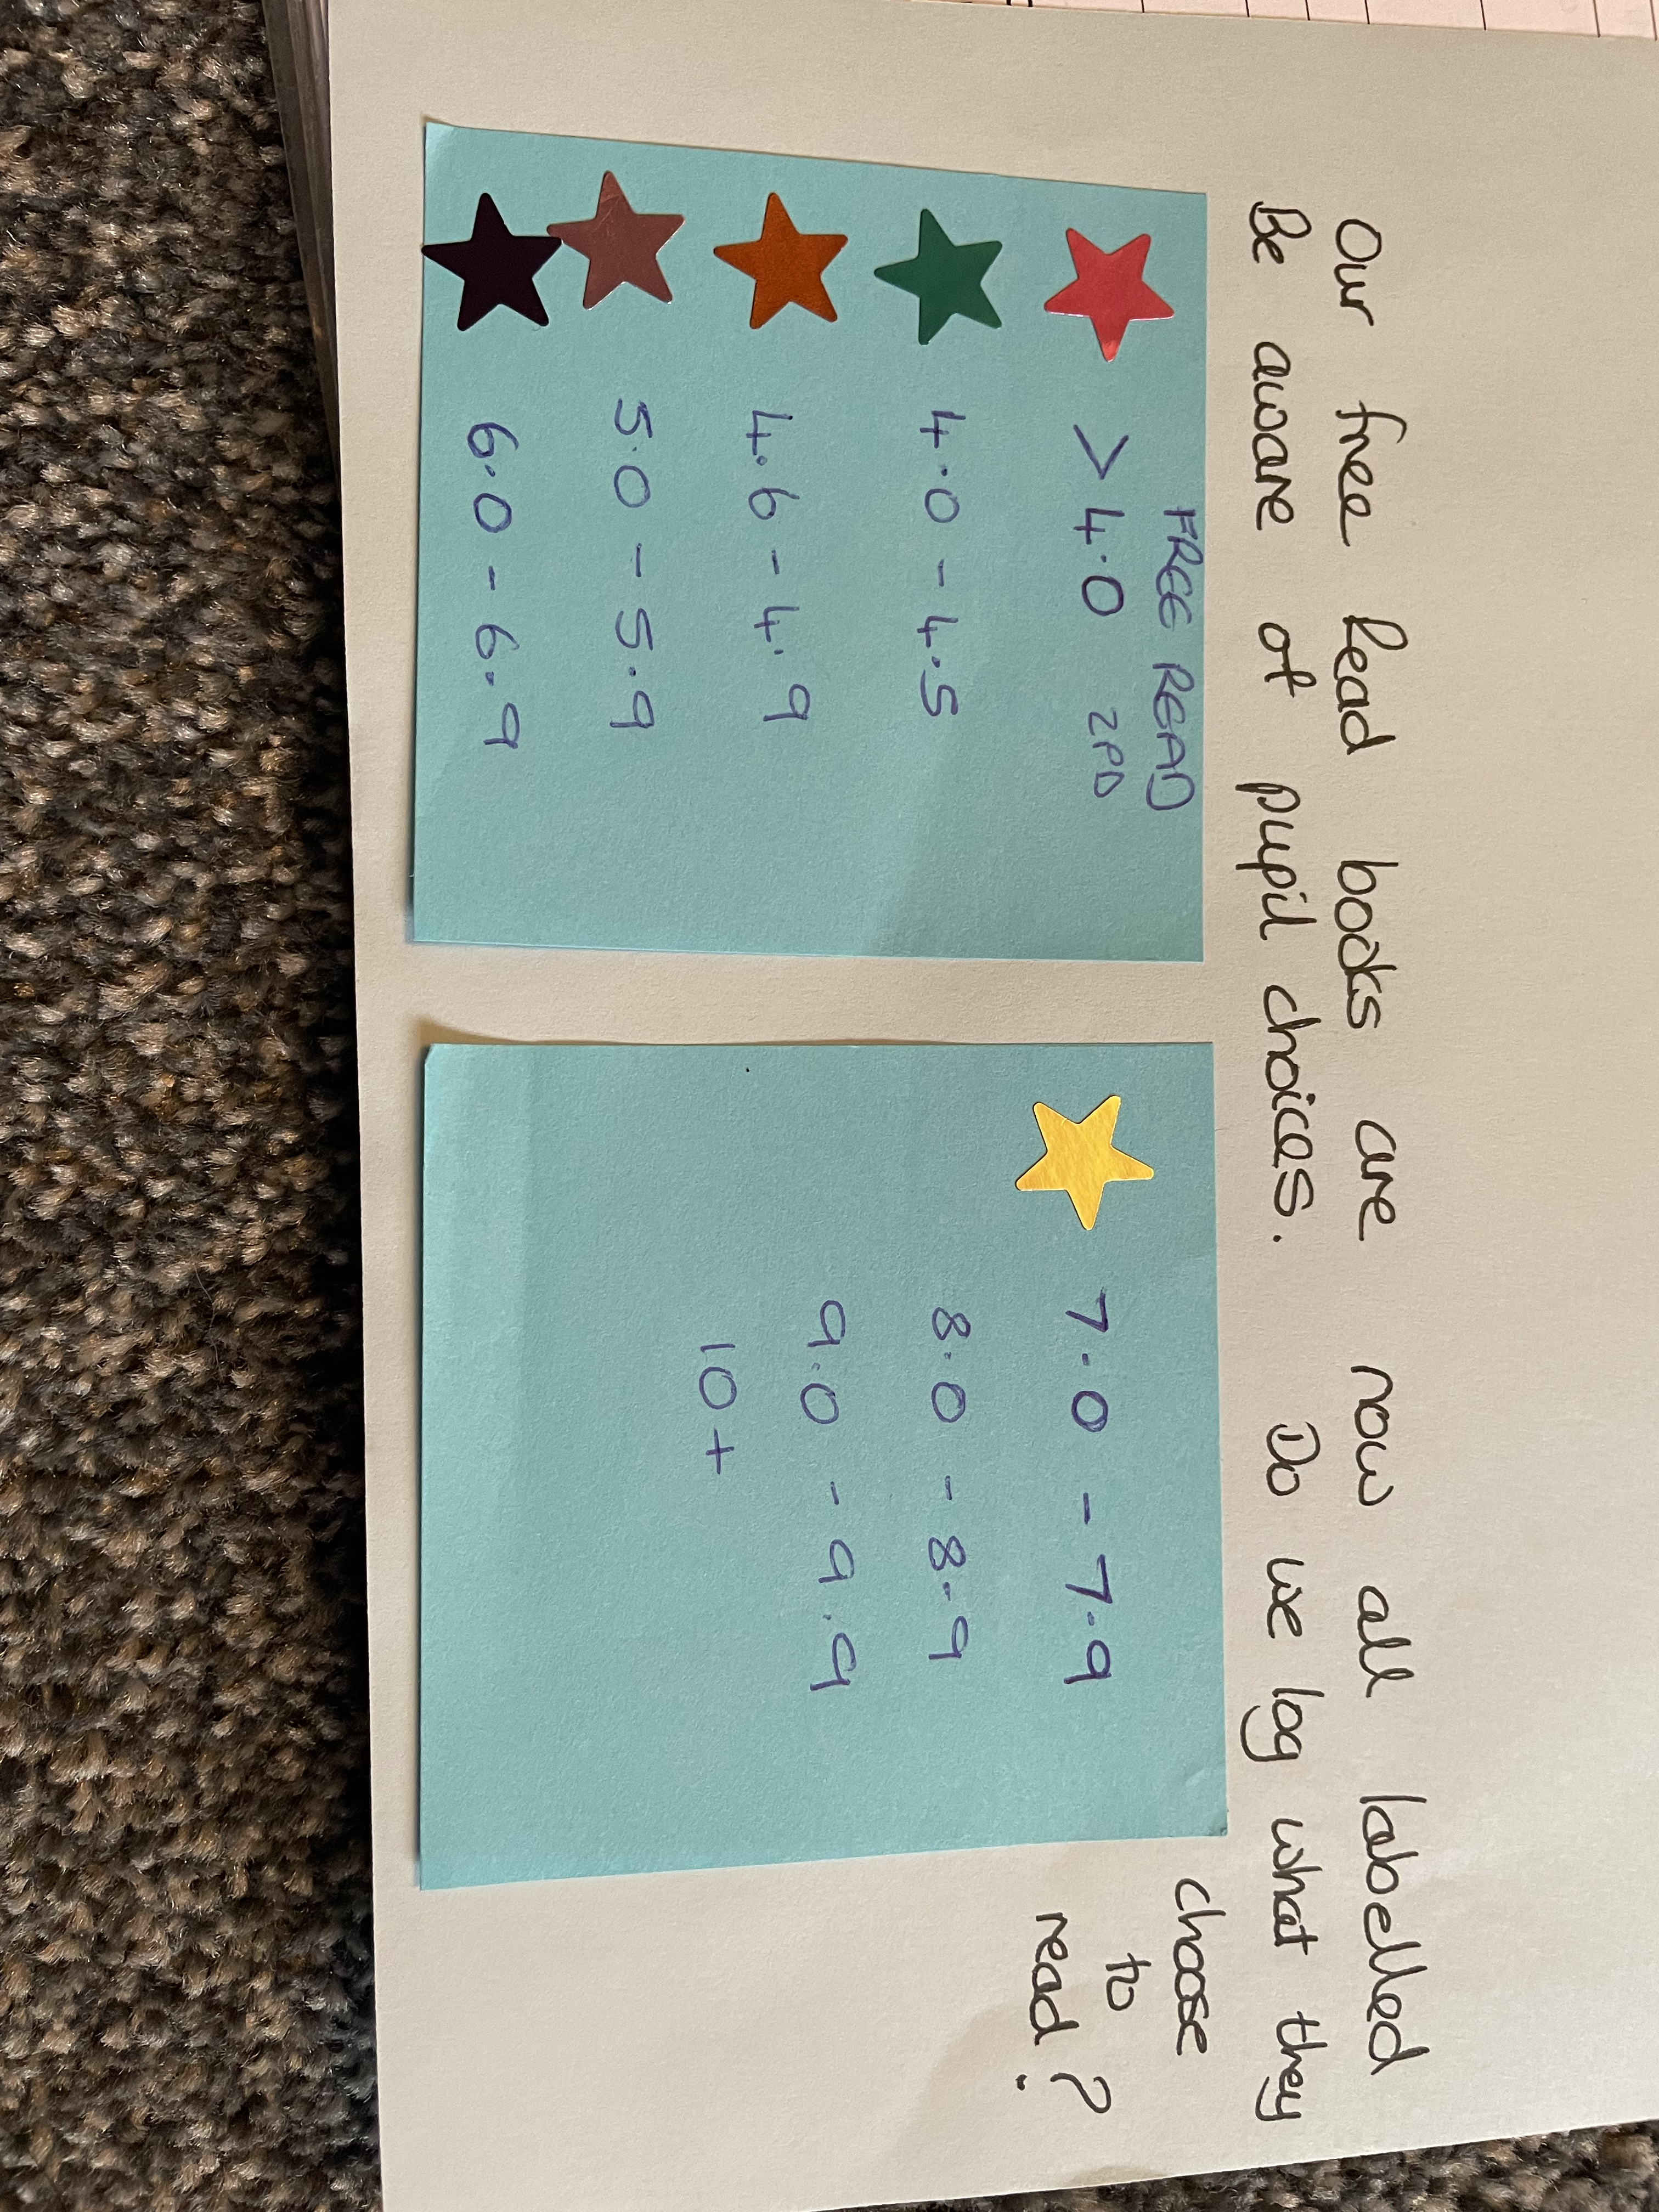 Our free read books are now all labelled
Be aware of pupil choices. Do we log what they
choose
to
read?
FREE READ
> 4.0 ZPD
4.0 - 4.5
4.6 - 4.9
5.0 - 5.9
6.0 - 6.9
7.0 - 7.9
8.0 - 8.9
9.0 - 9.9
10+